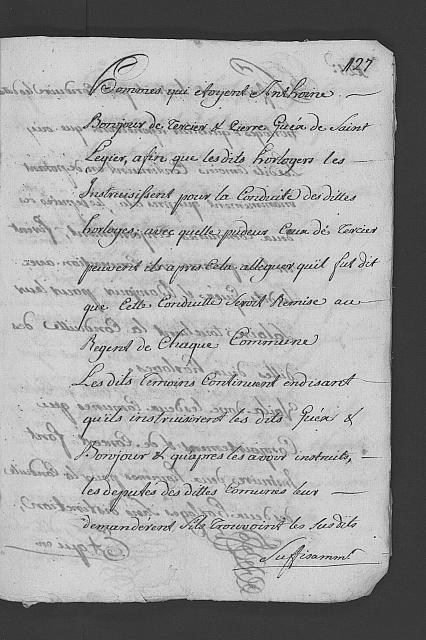 127
hommes qui etoyent Anthoine
Bonjour de Tercier & Pierre Guéx de Saint
Legier, afin que les dits horlogers les
Instruisissent pour la Conduite des dittes
horloges; avec quelle pudeur Ceux dé Tercier
peuvent ils apres Cela alleguer qu'il fut dit
que Cette Conduitte Seroit Remise au
Regent de Chaque Commune
Les dits Temoins Continuent endisant
qu'ils instruisirent les dits Guéx &
Bonjour & qu'apres les avoir instruits,
les deputés des dittes Comunes leur
demanderent S'ils Trouvoint les susdits
Suffisamm.t